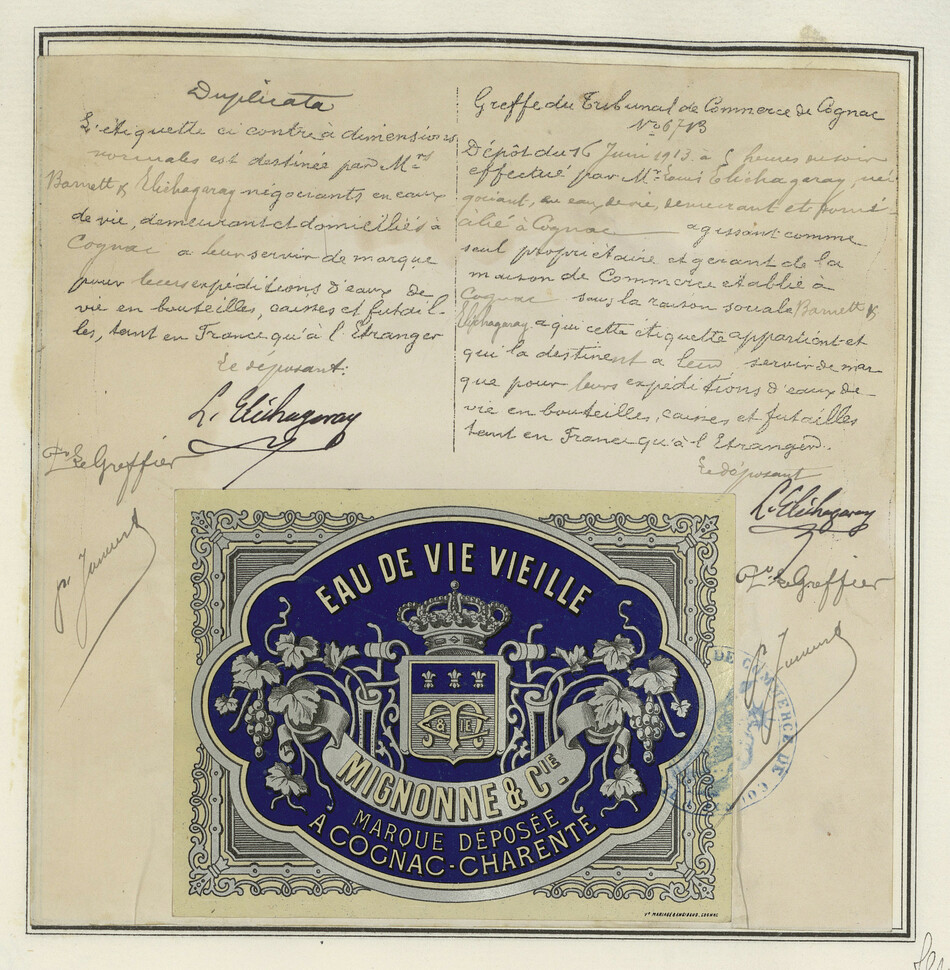 Duplicata
L'étiquette ci contre à dimensions
normales est destinée par Mrs
Barnett & Elichagaray négociants en eaux
de vie, demeurant et domiciliés à
Cognac a leur servir de marque
pour leurs expéditions d'eaux de
vie en bouteilles, caisses et futail-
les, tant en France qu'à l'Etranger
Le déposant:
L. Elichagaray
Le Greffier
Greffe du Tribunal de Commerce de Cognac
No 67 B
Dépôt du 16 Juin 1913 à 5 heures du soir
effectué par Mr Louis Elichagaray, né-
gociant, en eau de vie, demeurant et domi-
cilié à Cognac agissant comme
seul propriétaire et gérant de la
maison de Commerce établie à
Cognac sous la raison sociale Barnett &
Elichagaray a qui cette étiquette appartient et
qui la destinent a leur servir de mar
que pour leurs expéditions d'eaux de
vie en bouteilles, caisses et futailles
tant en France qu'à l'Etranger.
Le déposant
L. Elichagaray
Le Greffier
EAU DE VIE VIEILLE
MIGNONNE & CIE
MARQUE DÉPOSÉE
A COGNAC-CHARENTE
DE COMMERCE DE